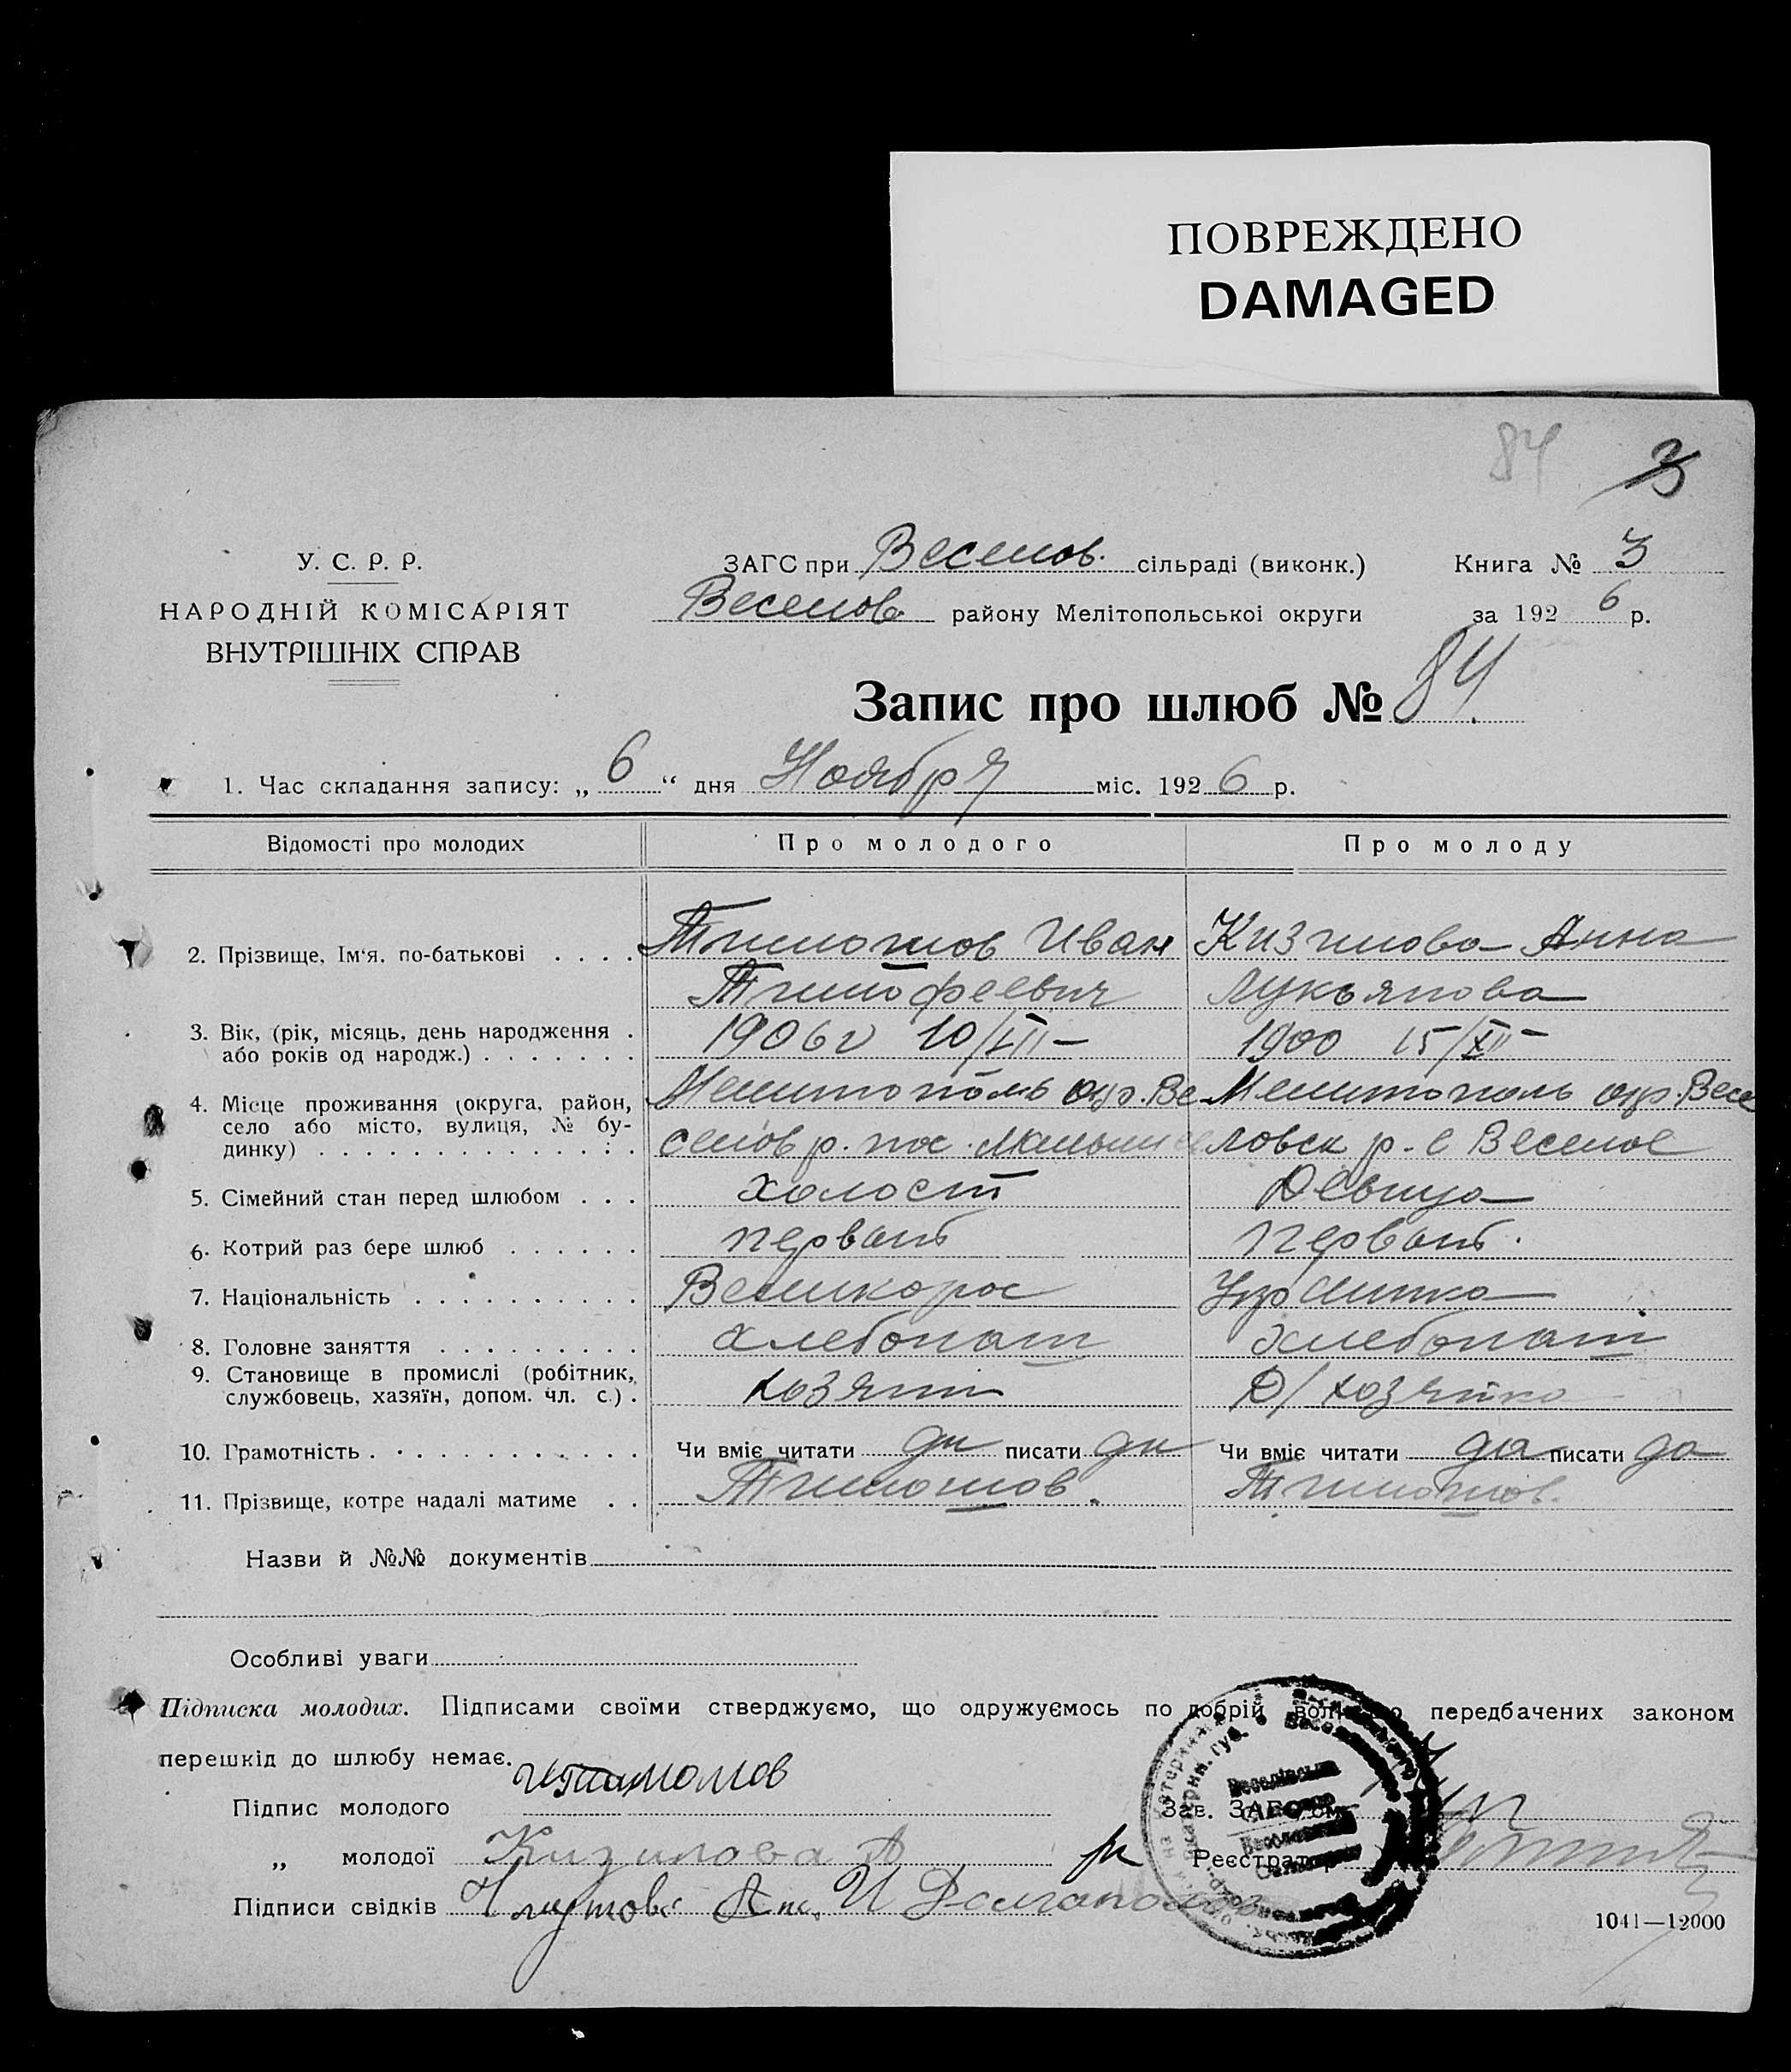 ПОВРЕЖДЕНО
DAMAGED
84 3
У. С. Р. Р.
НАРОДНІЙ КОМІСАРІЯТ
ВНУТРІШНІХ СПРАВ
ЗАГС при Веселов. сільраді (виконк.) Книга № 3
Веселов району Мелітопольської округи за 1926 р.
Запис про шлюб № 84
1. Час складання запису: „6“ дня Ноября міс. 1926 р.
Відомості про молодих Про молодого Про молоду
2. Прізвище, Ім'я, по-батькові . . . . Тимошов Иван Кизилова Анна
Тимофеевич Лукьянова
3. Вік, (рік, місяць, день народження . 1906 10/III– 1900 15/XII–
або років од народж.) . . . . . . .
4. Місце проживання (округа, район, Мелитополь окр. Ве Мелитополь окр. Весе
село або місто, вулиця, № бу- селов р. пос. ловск р. с Веселое
динку) . . . . . . . . . . . . . .
5. Сімейний стан перед шлюбом . . . холост Девица
6. Котрий раз бере шлюб . . . . . . первый первый.
7. Національність . . . . . . . . . . Великорос Украинка
8. Головне заняття . . . . . . . . . хлебопаш хлебопаш
9. Становище в промислі (робітник, хозяин Д/хозяйка
службовець, хазяїн, допом. чл. с.) .
10. Грамотність . . . . . . . . . . . Чи вміє читати да писати да Чи вміє читати да писати да
11. Прізвище, котре надалі матиме . . Тимошов. Тимошов.
Назви й №№ документів
Особливі уваги
Підписка молодих. Підписами своїми стверджуємо, що одружуємось по добрій волі передбачених законом
перешкід до шлюбу немає.
Підпис молодого
„ молодої Кизилова А Зав. ЗАГС'ом
Реєстратор
Підписи свідків И Долгополов
1041—12000